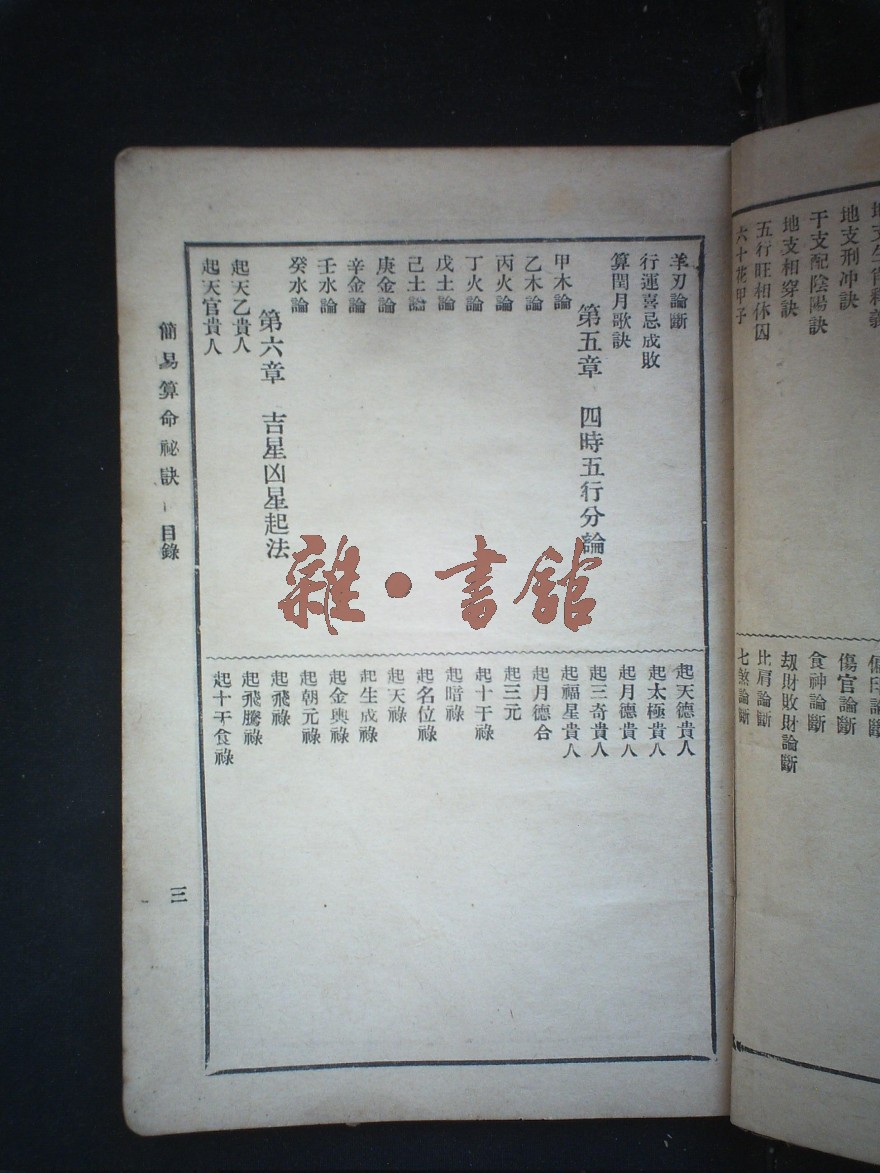 地支刑冲訣
干支配陰陽訣
地支相穿訣
五行旺相休囚
六十花甲子
傷官論斷
食神論斷
刼財敗財論斷
比肩論斷
七煞論斷
羊刃論斷
行運喜忌成敗
算閏月歌訣
第五章 四時五行分論
甲木論
乙木論
丙火論
丁火論
戊土論
己土論
庚金論
辛金論
壬水論
癸水論
第六章 吉星凶星起法
起天乙貴人
起天官貴人
起天德貴人
起太極貴人
起月德貴人
起三奇貴人
起福星貴人
起月德合
起三元
起十干祿
起暗祿
起名位祿
起天祿
起生成祿
起金輿祿
起朝元祿
起飛祿
起飛騰祿
起十干食祿
簡易算命祕訣 目錄
三
雜·書館